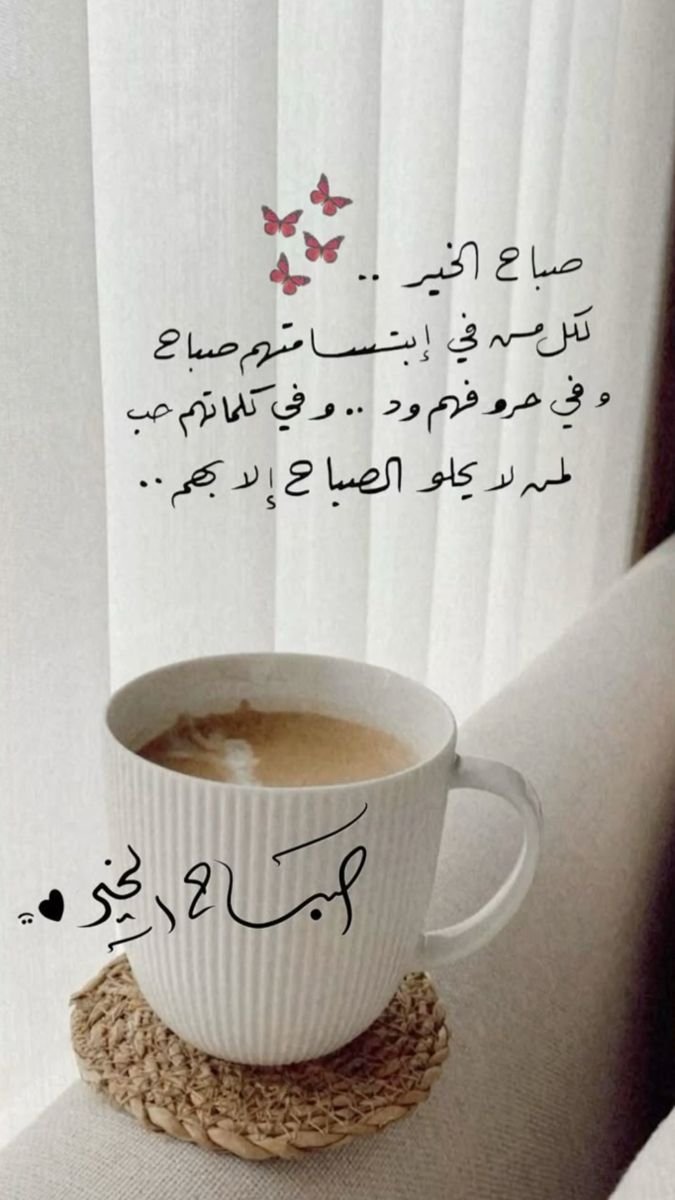 صباح الخير ..
لكل من في إبتسامتهم صباح
و في حروفهم ود .. و في كلماتهم حب
لمن لا يحلو الصباح إلا بهم ..
صباح الخير